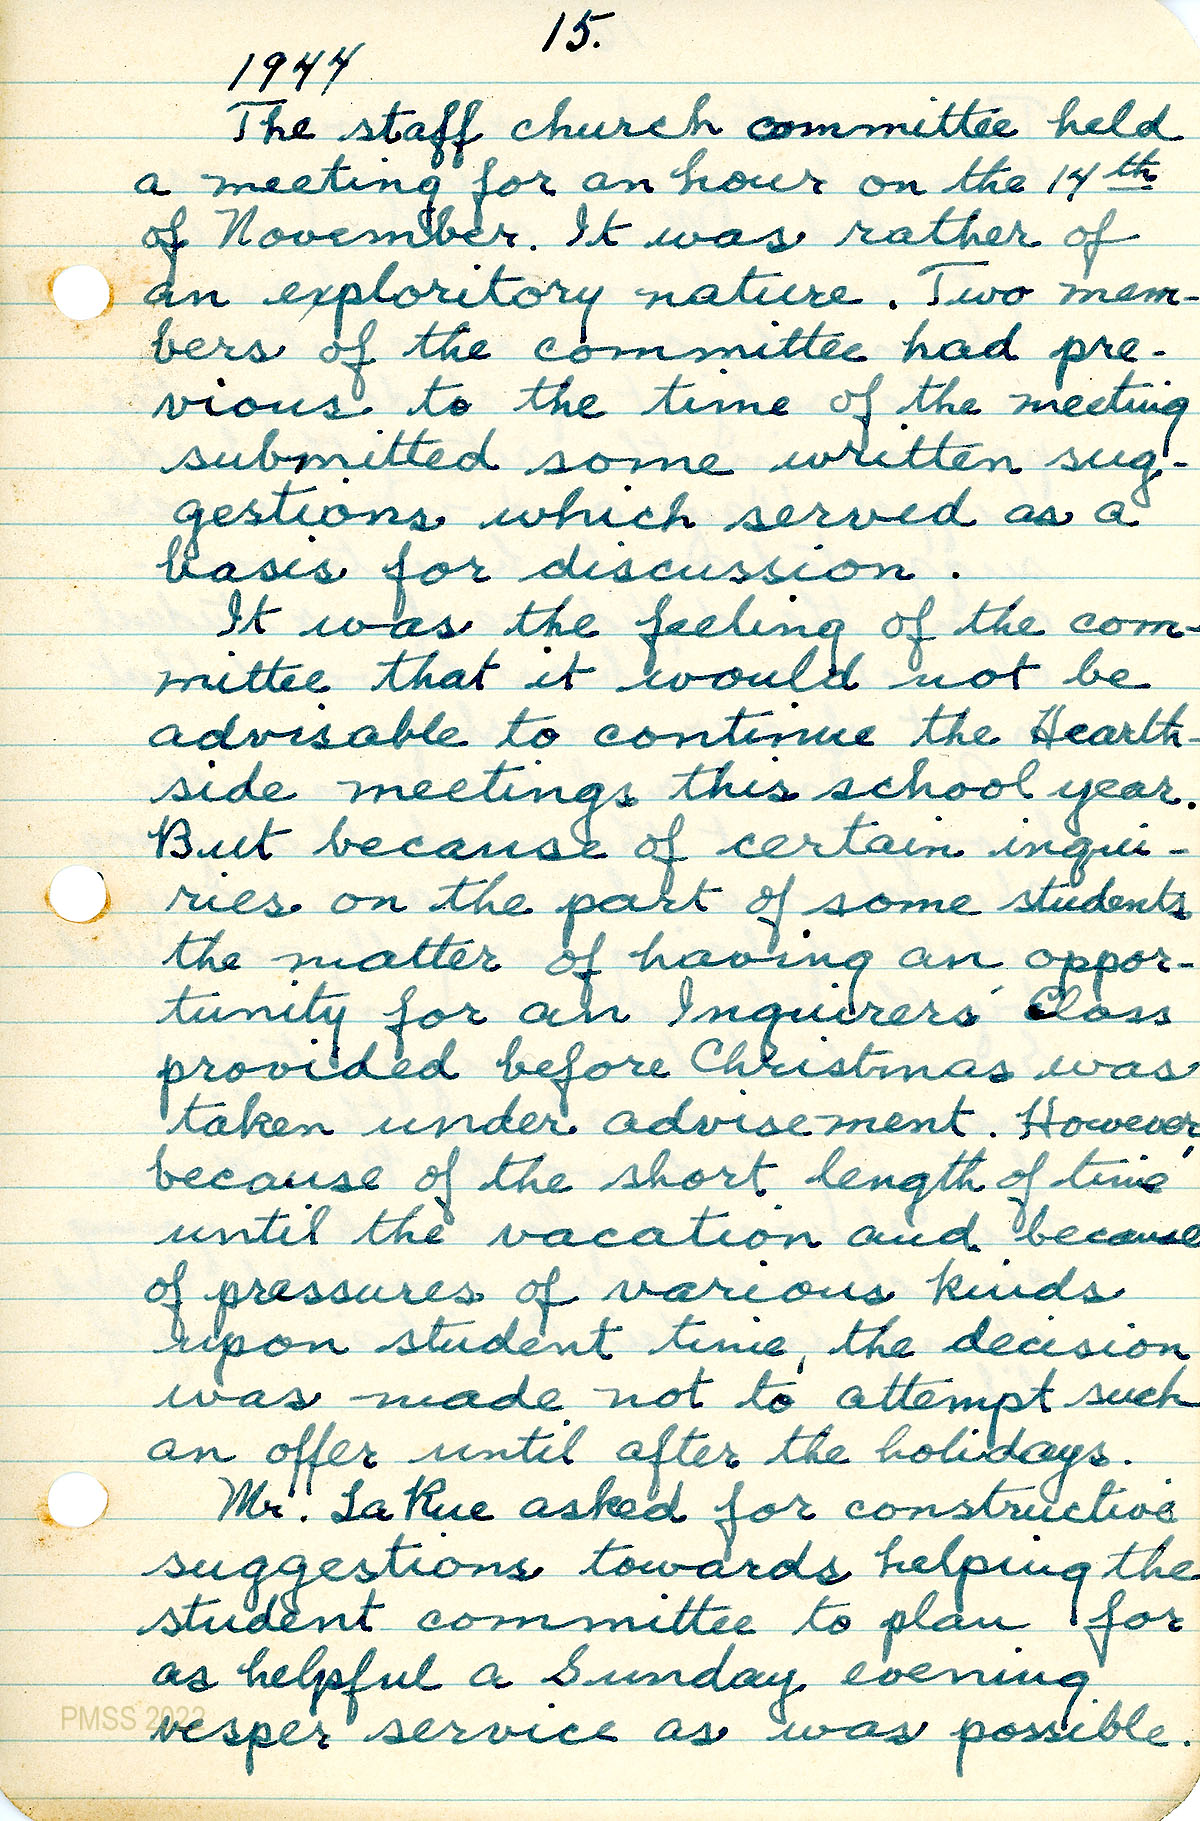 15.
1944
The staff church committee held
a meeting for an hour on the 14th
of November. It was rather of
an exploritory nature. Two mem-
bers of the committee had pre-
vious to the time of the meeting
submitted some written sug-
gestions which served as a
basis for discussion.
It was the feeling of the com-
mittee that it would not be
advisable to continue the Hearth-
side meetings this school year.
But because of certain inqui-
ries on the part of some students
the matter of having an oppor-
tunity for an Inquirers' Class
provided before Christmas was
taken under advisement. However,
because of the short length of time
until the vacation and because
of pressures of various kinds
upon student time, the decision
was made not to attempt such
an offer until after the holidays.
Mr. La Rue asked for constructive
suggestions towards helping the
student committee to plan for
as helpful a Sunday evening
vesper service as was possible.
PMSS 2022